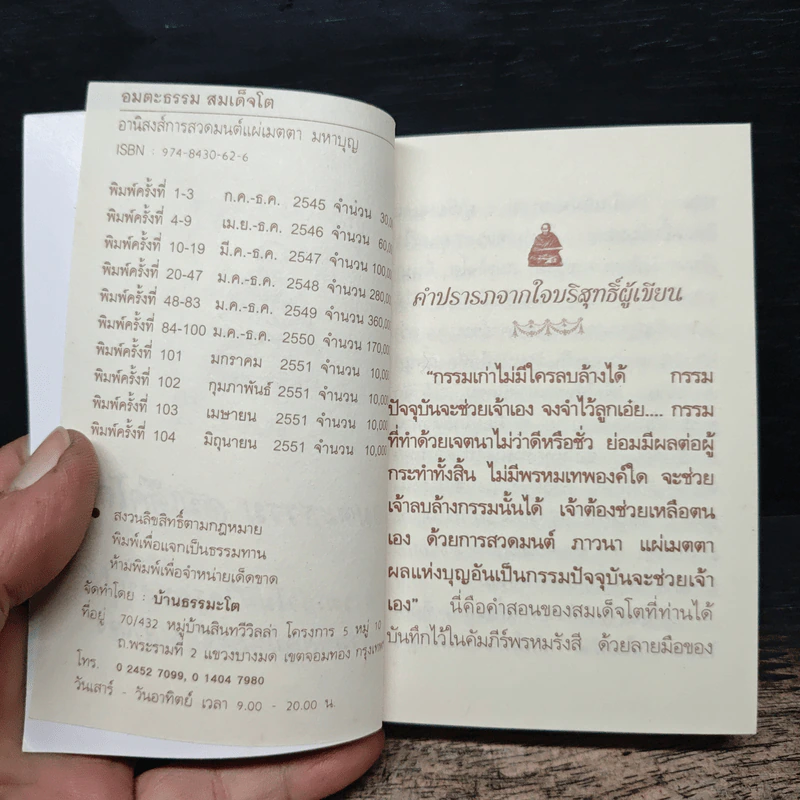 อมตะธรรม สมเด็จโต
อานิสงส์การสวดมนต์แผ่เมตตา มหาบุญ
ISBN : 974-8430-62-6
พิมพ์ครั้งที่ 1-3 ก.ค.-ธ.ค. 2545 จำนวน 30,00
พิมพ์ครั้งที่ 4-9 เม.ย.-ธ.ค. 2546 จำนวน 60,000
พิมพ์ครั้งที่ 10-19 มี.ค.-ธ.ค. 2547 จำนวน 100,000
พิมพ์ครั้งที่ 20-47 ม.ค.-ธ.ค. 2548 จำนวน 280,000
พิมพ์ครั้งที่ 48-83 ม.ค.-ธ.ค. 2549 จำนวน 360,000
พิมพ์ครั้งที่ 84-100 ม.ค.-ธ.ค. 2550 จำนวน 170,000
พิมพ์ครั้งที่ 101 มกราคม 2551 จำนวน 10,000
พิมพ์ครั้งที่ 102 กุมภาพันธ์ 2551 จำนวน 10,000
พิมพ์ครั้งที่ 103 เมษายน 2551 จำนวน 10,000
พิมพ์ครั้งที่ 104 มิถุนายน 2551 จำนวน 10,000
• สงวนลิขสิทธิ์ตามกฎหมาย
พิมพ์เพื่อแจกเป็นธรรมทาน
ห้ามพิมพ์เพื่อจำหน่ายเด็ดขาด
จัดทำโดย : บ้านธรรมะโต
ที่อยู่ 70/432 หมู่บ้านสินทวีวิลล่า โครงการ 5 หมู่ 10
ถ.พระรามที่ 2 แขวงบางมด เขตจอมทอง กรุงเทพฯ
โทร. 0 2452 7099, 0 1404 7980
วันเสาร์ - วันอาทิตย์ เวลา 9.00 - 20.00 น.
คำปรารภจากใจบริสุทธิ์ผู้เขียน
“กรรมเก่าไม่มีใครลบล้างได้ กรรม
ปัจจุบันจะช่วยเจ้าเอง จงจำไว้ลูกเอ๋ย.... กรรม
ที่ทำด้วยเจตนาไม่ว่าดีหรือชั่ว ย่อมมีผลต่อผู้
กระทำทั้งสิ้น ไม่มีพรหมเทพองค์ใด จะช่วย
เจ้าลบล้างกรรมนั้นได้ เจ้าต้องช่วยเหลือตน
เอง ด้วยการสวดมนต์ ภาวนา แผ่เมตตา
ผลแห่งบุญอันเป็นกรรมปัจจุบันจะช่วยเจ้า
เอง” นี่คือคำสอนของสมเด็จโตที่ท่านได้
บันทึกไว้ในคัมภีร์พรหมรังสี ด้วยลายมือของ